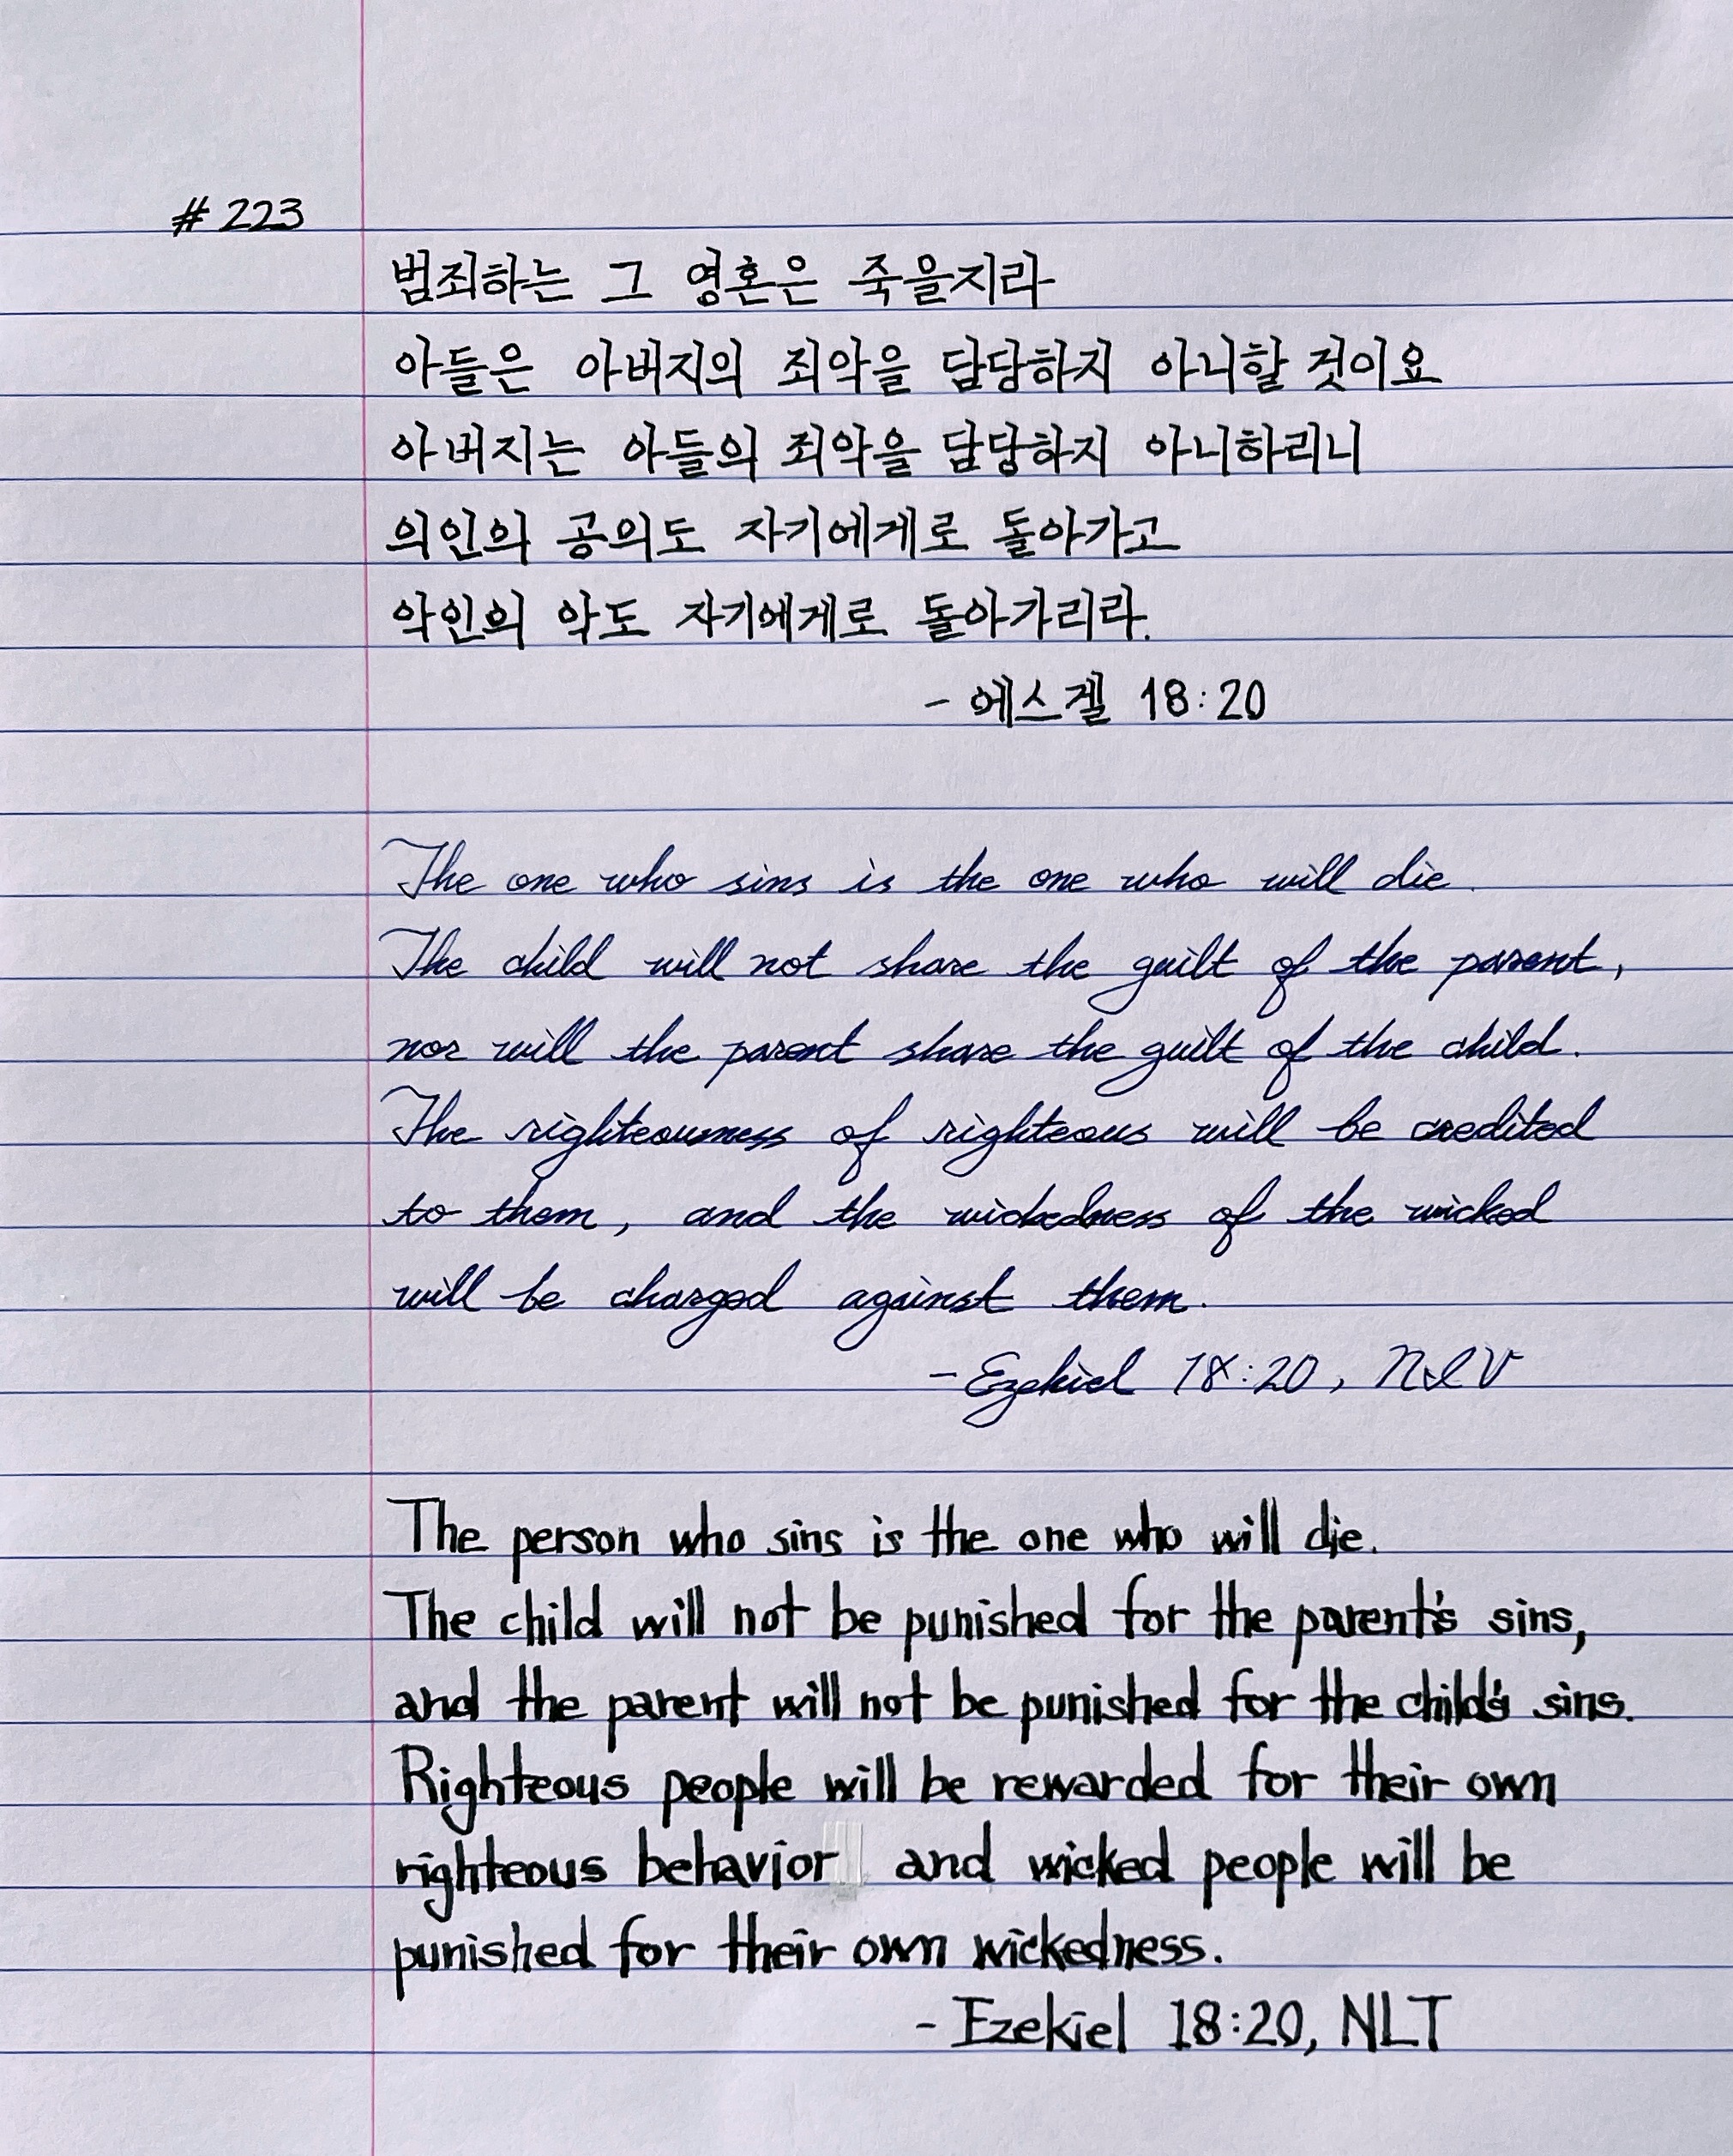 # 223
범죄하는 그 영혼은 죽을지라
아들은 아버지의 죄악을 담당하지 아니할 것이요
아버지는 아들의 죄악을 담당하지 아니하리니
의인의 공의도 자기에게로 돌아가고
악인의 악도 자기에게로 돌아가리라.
- 에스겔 18:20
The one who sins is the one who will die.
The child will not share the guilt of the parent,
nor will the parent share the guilt of the child.
The righteousness of righteous will be credited
to them, and the wickedness of the wicked
will be charged against them.
- Ezekiel 18:20, NIV
The person who sins is the one who will die.
The child will not be punished for the parent's sins,
and the parent will not be punished for the child's sins.
Righteous people will be rewarded for their own
righteous behavior and wicked people will be
punished for their own wickedness.
- Ezekiel 18:20, NLT